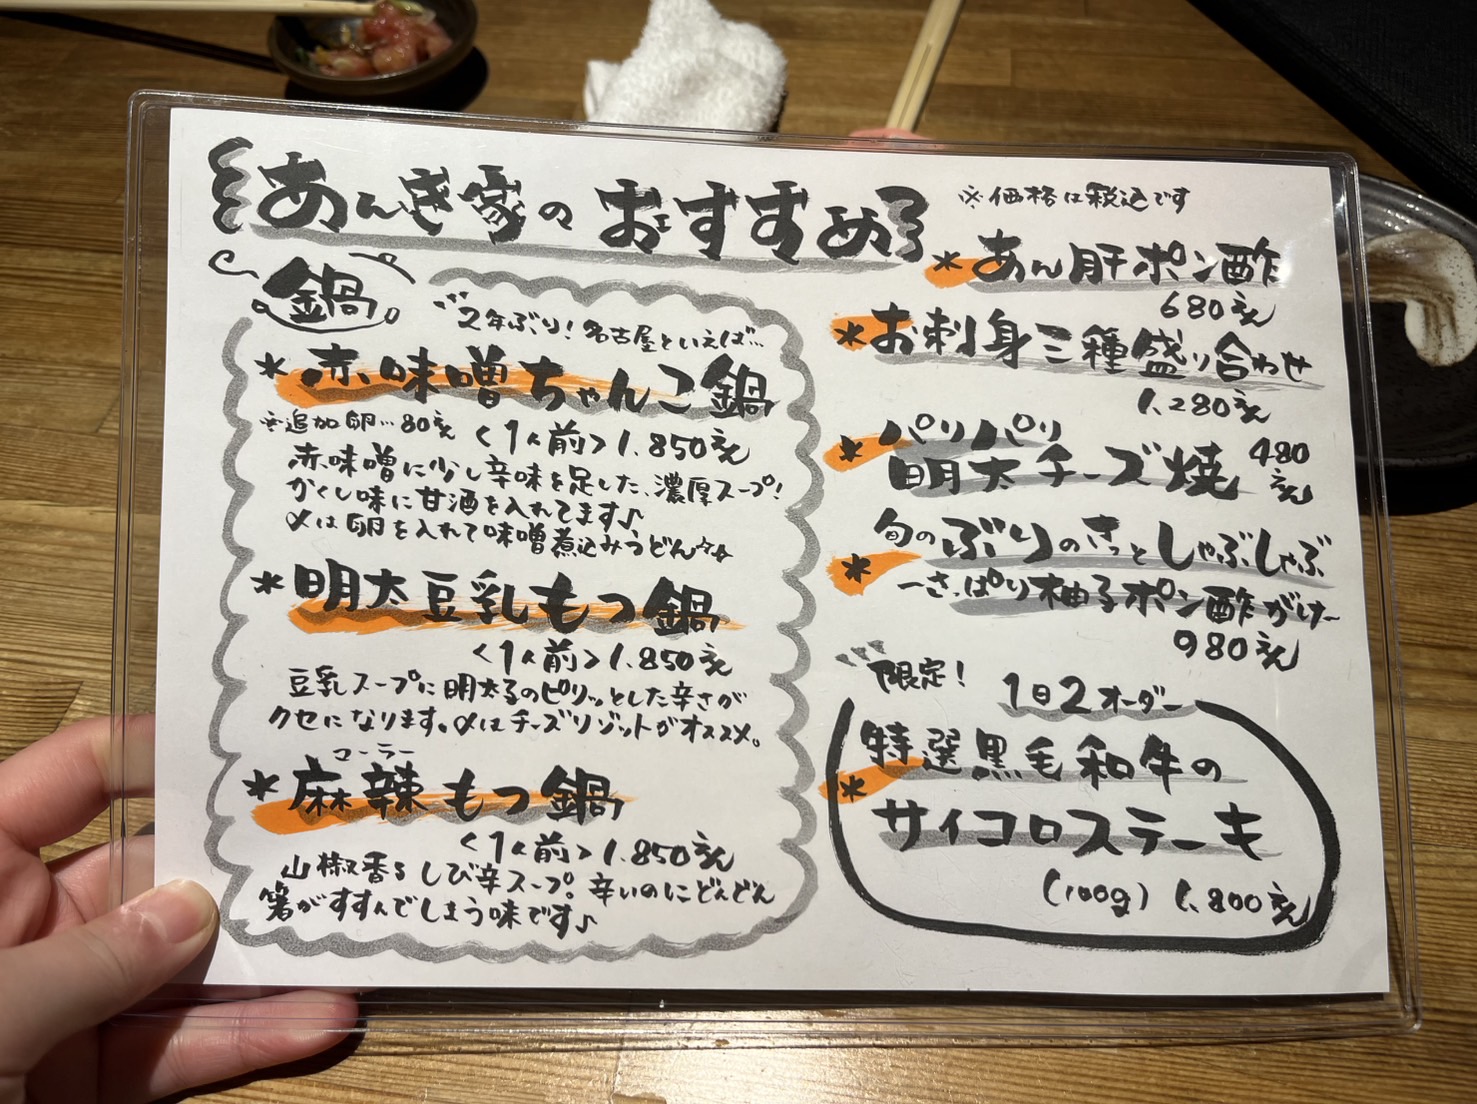 あんき家のおすすめ
※価格は税込です
鍋
2年ぶり！名古屋といえば…
*赤味噌ちゃんこ鍋
※追加卵…80えん
<1人前>1,850えん
赤味噌に少し辛味を足した、濃厚スープ!
かくし味に甘酒を入れてます♪
〆は卵を入れて味噌煮込みうどん☆
*明太豆乳もつ鍋
<1人前>1,850えん
豆乳スープに明太子のピリッとした辛さが
クセになります。〆はチーズリゾットがオススメ。
マーラー
*麻辣もつ鍋
<1人前>1,850えん
山椒香るしび辛スープ。辛いのにどんどん
箸がすすんでしまう味です♪
*あん肝ポン酢
680えん
*お刺身三種盛り合わせ
1,280えん
*パリパリ
明太チーズ焼 480えん
*旬のぶりのさっとしゃぶしゃぶ
-さっぱり柚子ポン酢がけ-
980えん
限定！
1日2オーダー
*特選黒毛和牛の
サイコロステーキ
(100g) 1,800えん